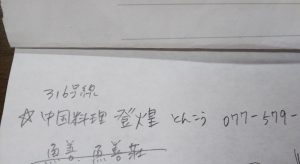 316号線
☆中国料理 登煌 とんこう 077-579-
魚善 魚善荘